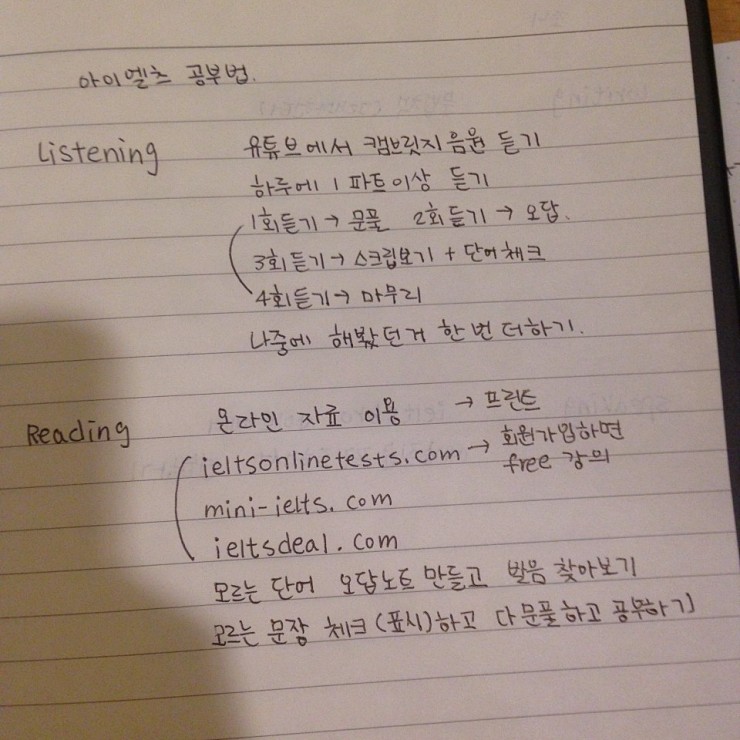 아이엘츠 공부법.
Listening 유튜브에서 캠브릿지음원 듣기
하루에 1 파트이상 듣기
1회듣기→ 문풀 2회듣기→ 오답.
3회듣기→ 스크립보기 + 단어체크
4회듣기→ 마무리
나중에 해봤던거 한번더하기.
Reading 온라인 자료 이용 → 프린트
ieltsonlinetests.com → 회원가입하면
free 강의
mini-ielts.com
ieltsdeal.com
모르는 단어 오답노트 만들고 발음 찾아보기
모르는 문장 체크(표시)하고 다 문풀하고 공부하기